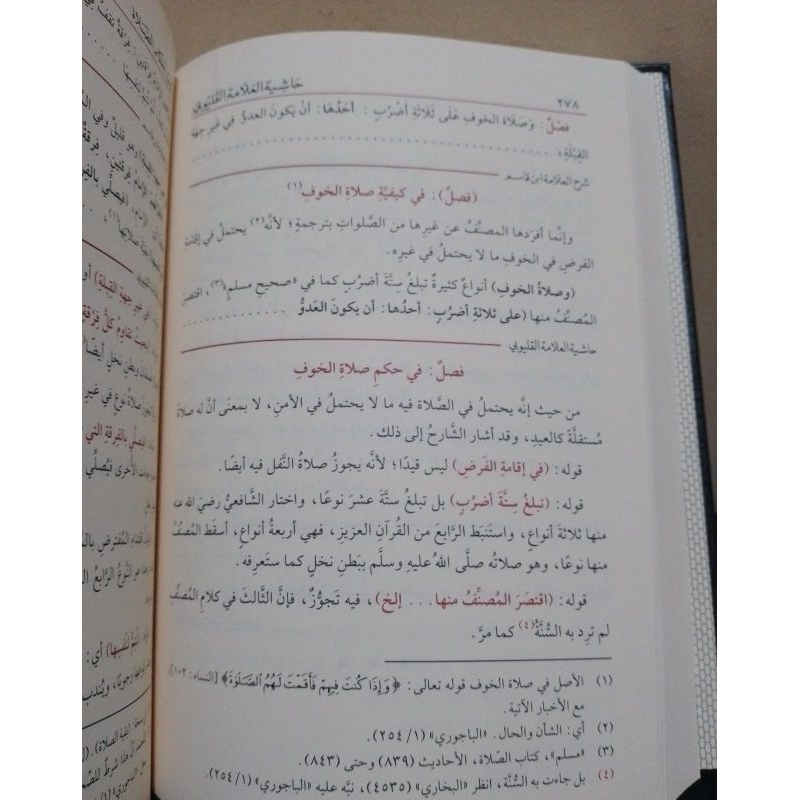 ٢٧٨
حاشية العلامة القليوبي
فصْلٌ: وَصَلاة الخوفِ عَلَى ثَلَاثَةِ أضْرُبٍ: أحَدُهَا: أنْ يَكونَ العدوُّ في غير جهَةِ
القِبْلَةِ، . . . . . . . . . . . . . . . . . . . . . . . . . . . . . .
شرح العلامة ابن قاسم
(فصلٌ): في كيفيَّةِ صلاةِ الخوفِ(١)
وإنَّما أفرَدها المصنِّفُ عن غيرِها من الصَّلواتِ بترجمةٍ؛ لأنَّه(٢) يحتملُ في إقامةِ
الفرضِ في الخوفِ ما لا يحتملُ في غيرِه.
(وصلاةُ الخوفِ) أنواعٌ كثيرةٌ تبلغُ ستَّةَ أضرُبٍ كما في «صحيحِ مسلمٍ»(٣)، اقتصرَ
المُصنِّفُ منها (على ثلاثةِ أضرُبٍ: أحدُها: أن يكونَ العَدوُّ . . . . . . . . . . . .
حاشية العلامة القليوبي
فصلٌ: في حكمِ صلاةِ الخوفِ
من حيث إنَّه يحتملُ في الصَّلاة فيه ما لا يحتملُ في الأمنِ، لا بمعنَى أنَّ له صلاةً
مُستقلَّةً كالعيدِ، وقد أشار الشَّارحُ إلى ذلك.
قوله: (في إقامةِ الفَرضِ) ليس قيدًا؛ لأنَّه يجوزُ صلاةُ النَّفل فيه أيضًا.
قوله: (تبلغُ ستَّةَ أضرُبٍ) بل تبلغُ ستَّةَ عشرَ نوعًا، واختار الشَّافعيُّ رضيَ الله عنه
منها ثلاثةَ أنواعٍ، واستَنبَط الرَّابعَ من القُرآنِ العزيزِ، فهي أربعةُ أنواعٍ، أسقَط المُصنِّفُ
منها نوعًا، وهو صلاتُه صلَّى اللهُ عليهِ وسلَّم ببَطنِ نخلٍ كما ستَعرِفه.
قوله: (اقتصَرَ المُصنِّفُ منها. . . إلخ)، فيه تَجوُّزٌ، فإنَّ الثالثَ في كلامِ المصنِّفِ
لم ترِد به السُّنَّةُ(٤) كما مرَّ.
(١) الأصل في صلاة الخوف قوله تعالى: ﴿وَإِذَا كُنتَ فِيهِمْ فَأَقَمْتَ لَهُمُ ٱلصَّلَوٰةَ﴾ [النساء: ١٠٢]،
مع الأخبار الآتية.
(٢) أي: الشأن والحال. «الباجوري» (١/ ٢٥٤).
(٣) «مسلم»، كتاب الصّلاة، الأحاديث (٨٣٩) وحتى (٨٤٣).
(٤) بل جاءت به السُّنَّة، انظر «البخاري» (٤٥٣٥)، نبَّه عليه «الباجوري» (١/ ٢٥٤).